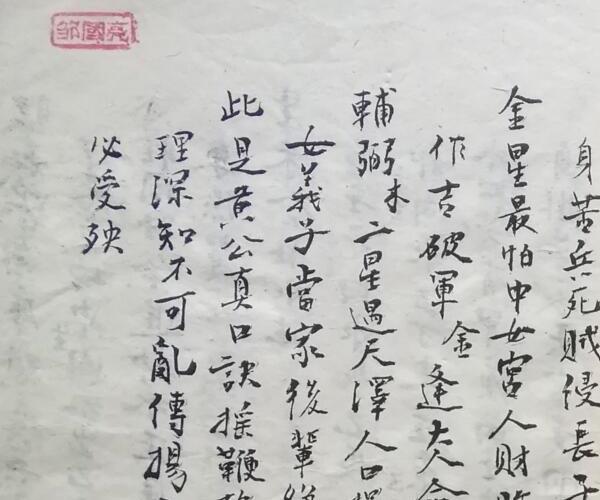 身苦兵死賊侵長子
金星最怕中女宮人財
作吉破軍金逢大人命
輔弼木二星遇天澤人口
女義子當家後輩
此是黄公真口訣摇鞭
理深知不可亂傳揚
必受殃
邹國亮